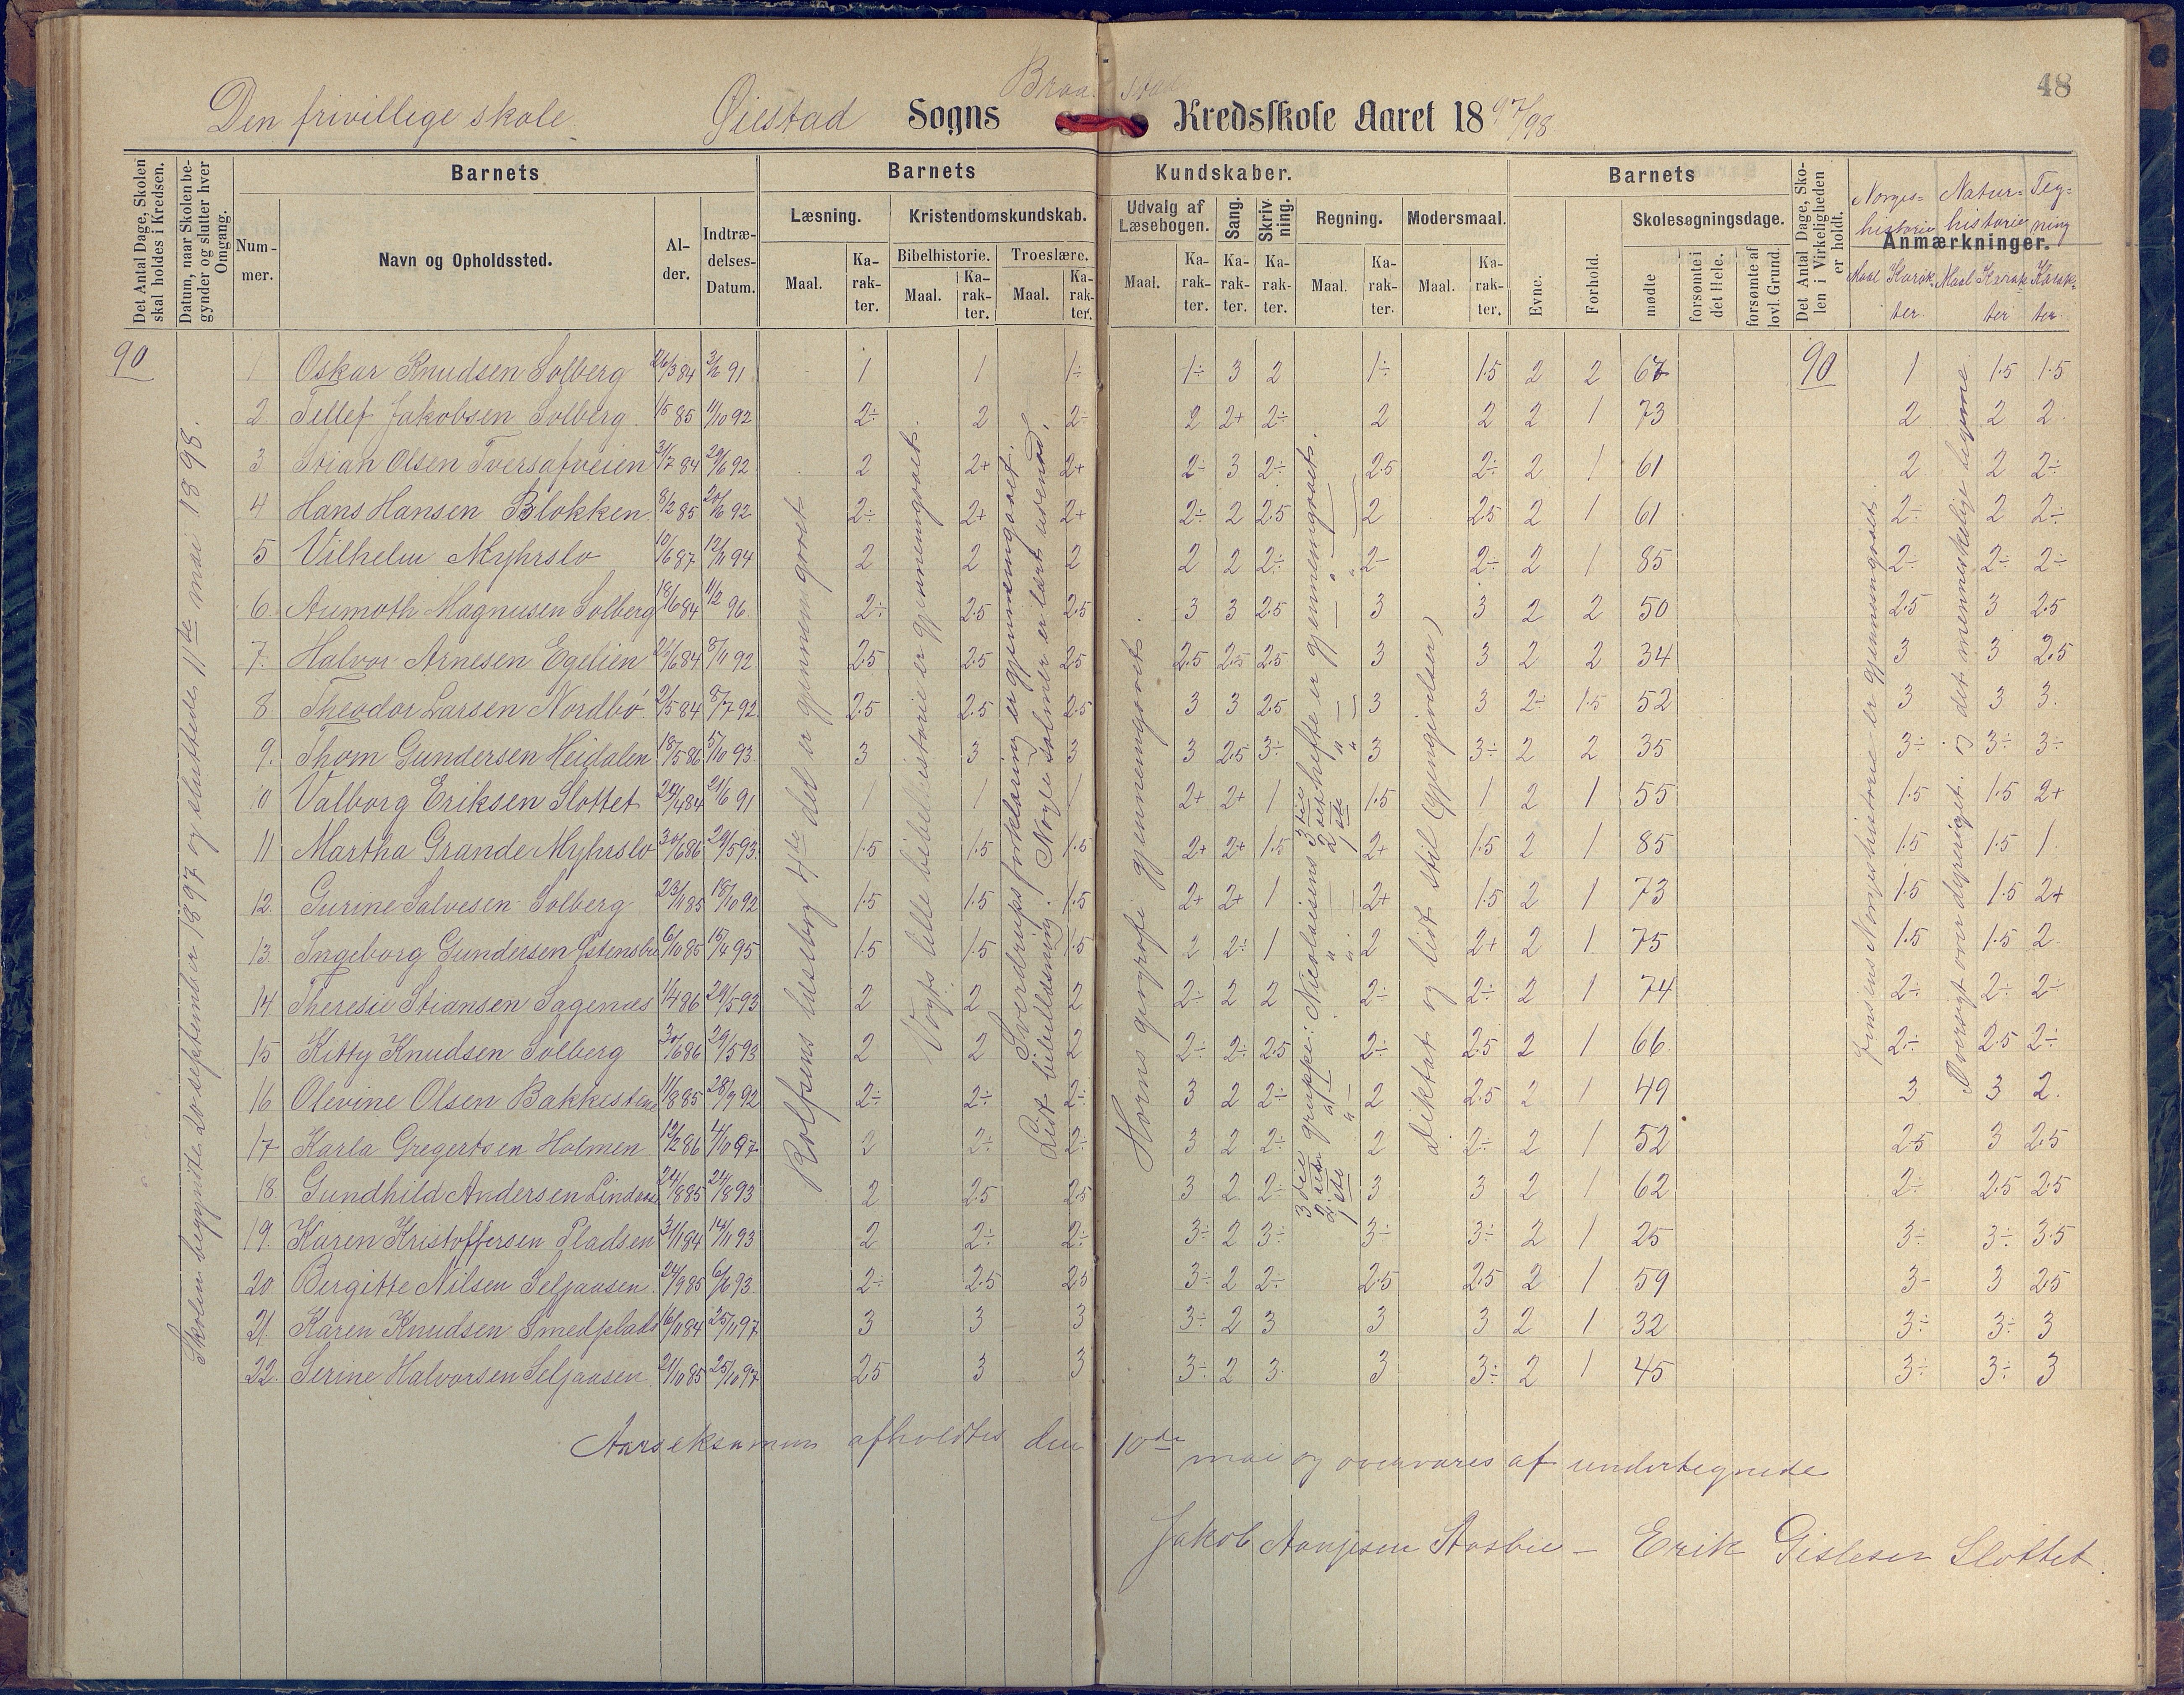 48
Den frivillege skole. Øiestad Sogns Braastad Kredsskole Aaret 1897/98
Det Antal Dage, Skolen skal holdes i Kredsen.
Datum, naar Skolen begynder og slutter hver Omgang.
Barnets
Nummer.
Navn og Opholdssted.
Alder.
Indtrædelses-Datum.
Barnets Kundskaber.
Læsning. Maal. Karakter.
Kristendomskundskab.
Bibelhistorie. Maal. Karakter.
Troeslære. Maal. Karakter.
Udvalg af Læsebogen. Maal. Karakter.
Sang. Karakter.
Skrivning. Karakter.
Regning. Maal. Karakter.
Modersmaal. Maal. Karakter.
Barnets
Evne.
Forhold.
Skolesøgningsdage.
mødte
forsømte i det Hele.
forsømte af lovl. Grund.
Det Antal Dage, Skolen i Virkeligheden er holdt.
Anmærkninger.
Norges-historie Maal Karakter
Natur-historie Maal Karakter
Tegning Karakter
90
Skolen begyndte 20 september 1897 og sluttede 11te mai 1898.
1 Oskar Knudsen Solberg 26/3 84 3/6 91 1 1 1÷ 1÷ 3 2 1÷ 1.5 2 2 67 90 1 1.5 1.5
2 Tellef Jakobsen Solberg 1/5 85 11/10 92 2÷ 2 2÷ 2 2+ 2÷ 2 2 2 1 73 2 2 2
3 Stian Olsen Tversafveien 31/7 84 20/6 92 2 2+ 2+ 2÷ 3 2÷ 2.5 2÷ 2 1 61 2 2 2÷
4 Hans Hansen Blokken 8/2 85 20/6 92 2÷ 2+ 2+ 2÷ 2 2.5 2 2.5 2 1 61 2÷ 2 2÷
5 Vilhelm Myhrslo 10/6 87 12/11 94 2 2 2 2 2 2÷ 2÷ 2÷ 2 1 85 2÷ 2÷ 2÷
6. Aumoth Magnusen Solberg 18/6 84 11/2 96 2÷ 2.5 2.5 3 3 2.5 3 3 2 2 50 2.5 3 2.5
7. Halvor Arnesen Egelien 21/6 84 8/11 92 2.5 2.5 2.5 2.5 2.5 2.5 3 3 2 2 34 3 3 2.5
8. Theodor Larsen Nordbö 2/5 84 8/7 92 2.5 2.5 2.5 3 3 2.5 3 3 2÷ 1.5 52 3 3 3.
9. Thom Gundersen Heidalen 18/5 86 5/10 93 3 3 3 3 2.5 3÷ 3 3÷ 2 2 35 3÷ 3÷ 3÷
10 Valborg Eriksen Slottet 20/4 84 21/6 91 1 1 1 2+ 2+ 1 1.5 1 2 1 55 1.5 1.5 2+
11 Martha Grande Myhrslo 30/6 86 29/5 93 1.5 1.5 1.5 2+ 2+ 1.5 2+ 1.5 2 1 85 1.5 1.5 1
12. Gurine Salvesen Solberg 23/11 85 18/10 92 1.5 1.5 1.5 2+ 2+ 1 2+ 1.5 2 1 73 1.5 1.5 2+
13. Ingeborg Gundersen Østensbu 6/10 85 15/4 95 1.5 1.5 1.5 2 2÷ 1 2 2+ 2 1 75 1.5 1.5 2
14 Theresie Stiansen Sagenæs 1/4 86 29/5 93 2 2 2 2÷ 2 2 2÷ 2÷ 2 1 74 2÷ 2÷ 2÷
15 Kitty Knudsen Solberg 30/6 86 29/5 93 2 2 2 2÷ 2÷ 2.5 2÷ 2.5 2 1 66 2÷ 2.5 2÷
16 Olevine Olsen Bakkestene 11/8 85 28/9 92 2÷ 2÷ 2÷ 3 2 2÷ 2 2.5 2 1 49 3 3 2.
17 Karla Gregertsen Holmen 12/2 86 4/10 97 2 2÷ 2÷ 3 2 2÷ 2 2÷ 2 1 52 2.5 3 2.5
18. Gundhild Andersen Lindaas 24/8 85 24/8 93 2 2.5 2.5 3 2 2÷ 3 3 2 1 62 2÷ 2.5 2.5
19. Karen Kristoffersen Pladsen 3/11 84 14/11 93 2 2÷ 2÷ 3÷ 2 3÷ 3÷ 3÷ 2 1 25 3÷ 3÷ 3.5
20 Bergitte Nilsen Seljaasen 24/9 85 6/6 93 2÷ 2.5 2.5 3÷ 2 2÷ 2.5 2.5 2 1 59 3- 3 2.5
21. Karen Knudsen Smedplads 16/11 84 25/11 97 3 3 3 3÷ 2 3 3 3 2 1 32 3÷ 3÷ 3
22. Serine Halvorsen Seljaasen 21/10 85 25/10 97 2.5 3 3 3÷ 2 3 3 3÷ 2 1 45 3÷ 3÷ 3
Rolfsens læsebog 4de del er gjennemgaaet
Vogts lille bibelhistorie er gjennemgaaet.
Sverdrups forklaring er gjennemgaaet.
Lidt bibellæsning. Nogle salmer er lært udenad.
Horns geografi gjennemgaaet.
3die gruppe: Nicolaisens 3die hefte er gjennemgaaet.
2den 2det
1ste 1ste
Diktat og lidt stil (gjengivelser)
Jensens Norgeshistorie er gjennemgaaet.
Oversigt over dyreriget. og det menneskelige legeme
Aarseksamen afholdtes den 10de mai og overvares af undertegnede
Jakob Aanjesen Aasbie - Erik Gislesen Slottet.